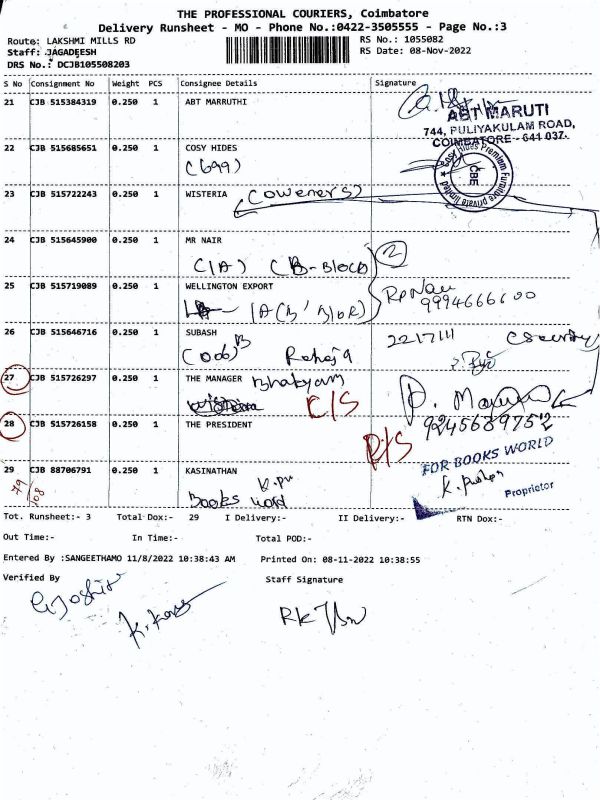 THE PROFESSIONAL COURIERS, Coimbatore
Delivery Runsheet - MO - Phone No.:0422-3505555 - Page No.:3
Route: LAKSHMI MILLS RD RS No.: 1055082
Staff: JAGADEESH RS Date: 08-Nov-2022
DRS No.: DCJB105508203
S No Consignment No Weight PCS Consignee Details Signature
21 CJB 515384319 0.250 1 ABT MARRUTHI
ABT MARUTI
744, PULIYAKULAM ROAD,
COIMBATORE - 641 037.
22 CJB 515685651 0.250 1 COSY HIDES
(699)
Cosy Hides Premium Furniture private limited
CBE
23 CJB 515722243 0.250 1 WISTERIA (COWENERS)
24 CJB 515645900 0.250 1 MR NAIR
(1A) (B-Block) 2
25 CJB 515719089 0.250 1 WELLINGTON EXPORT
9994666600
26 CJB 515646716 0.250 1 SUBASH
(006) B Raheja
221711
27 CJB 515726297 0.250 1 THE MANAGER Bhakyam
C/S
28 CJB 515726158 0.250 1 THE PRESIDENT
R/S
FOR BOOKS WORLD
Proprietor
29 CJB 88706791 0.250 1 KASINATHAN
Books World
79
108
Tot. Runsheet:- 3 Total Dox:- 29 I Delivery:- II Delivery:- RTN Dox:-
Out Time:- In Time:- Total POD:-
Entered By :SANGEETHAMO 11/8/2022 10:38:43 AM Printed On: 08-11-2022 10:38:55
Verified By Staff Signature